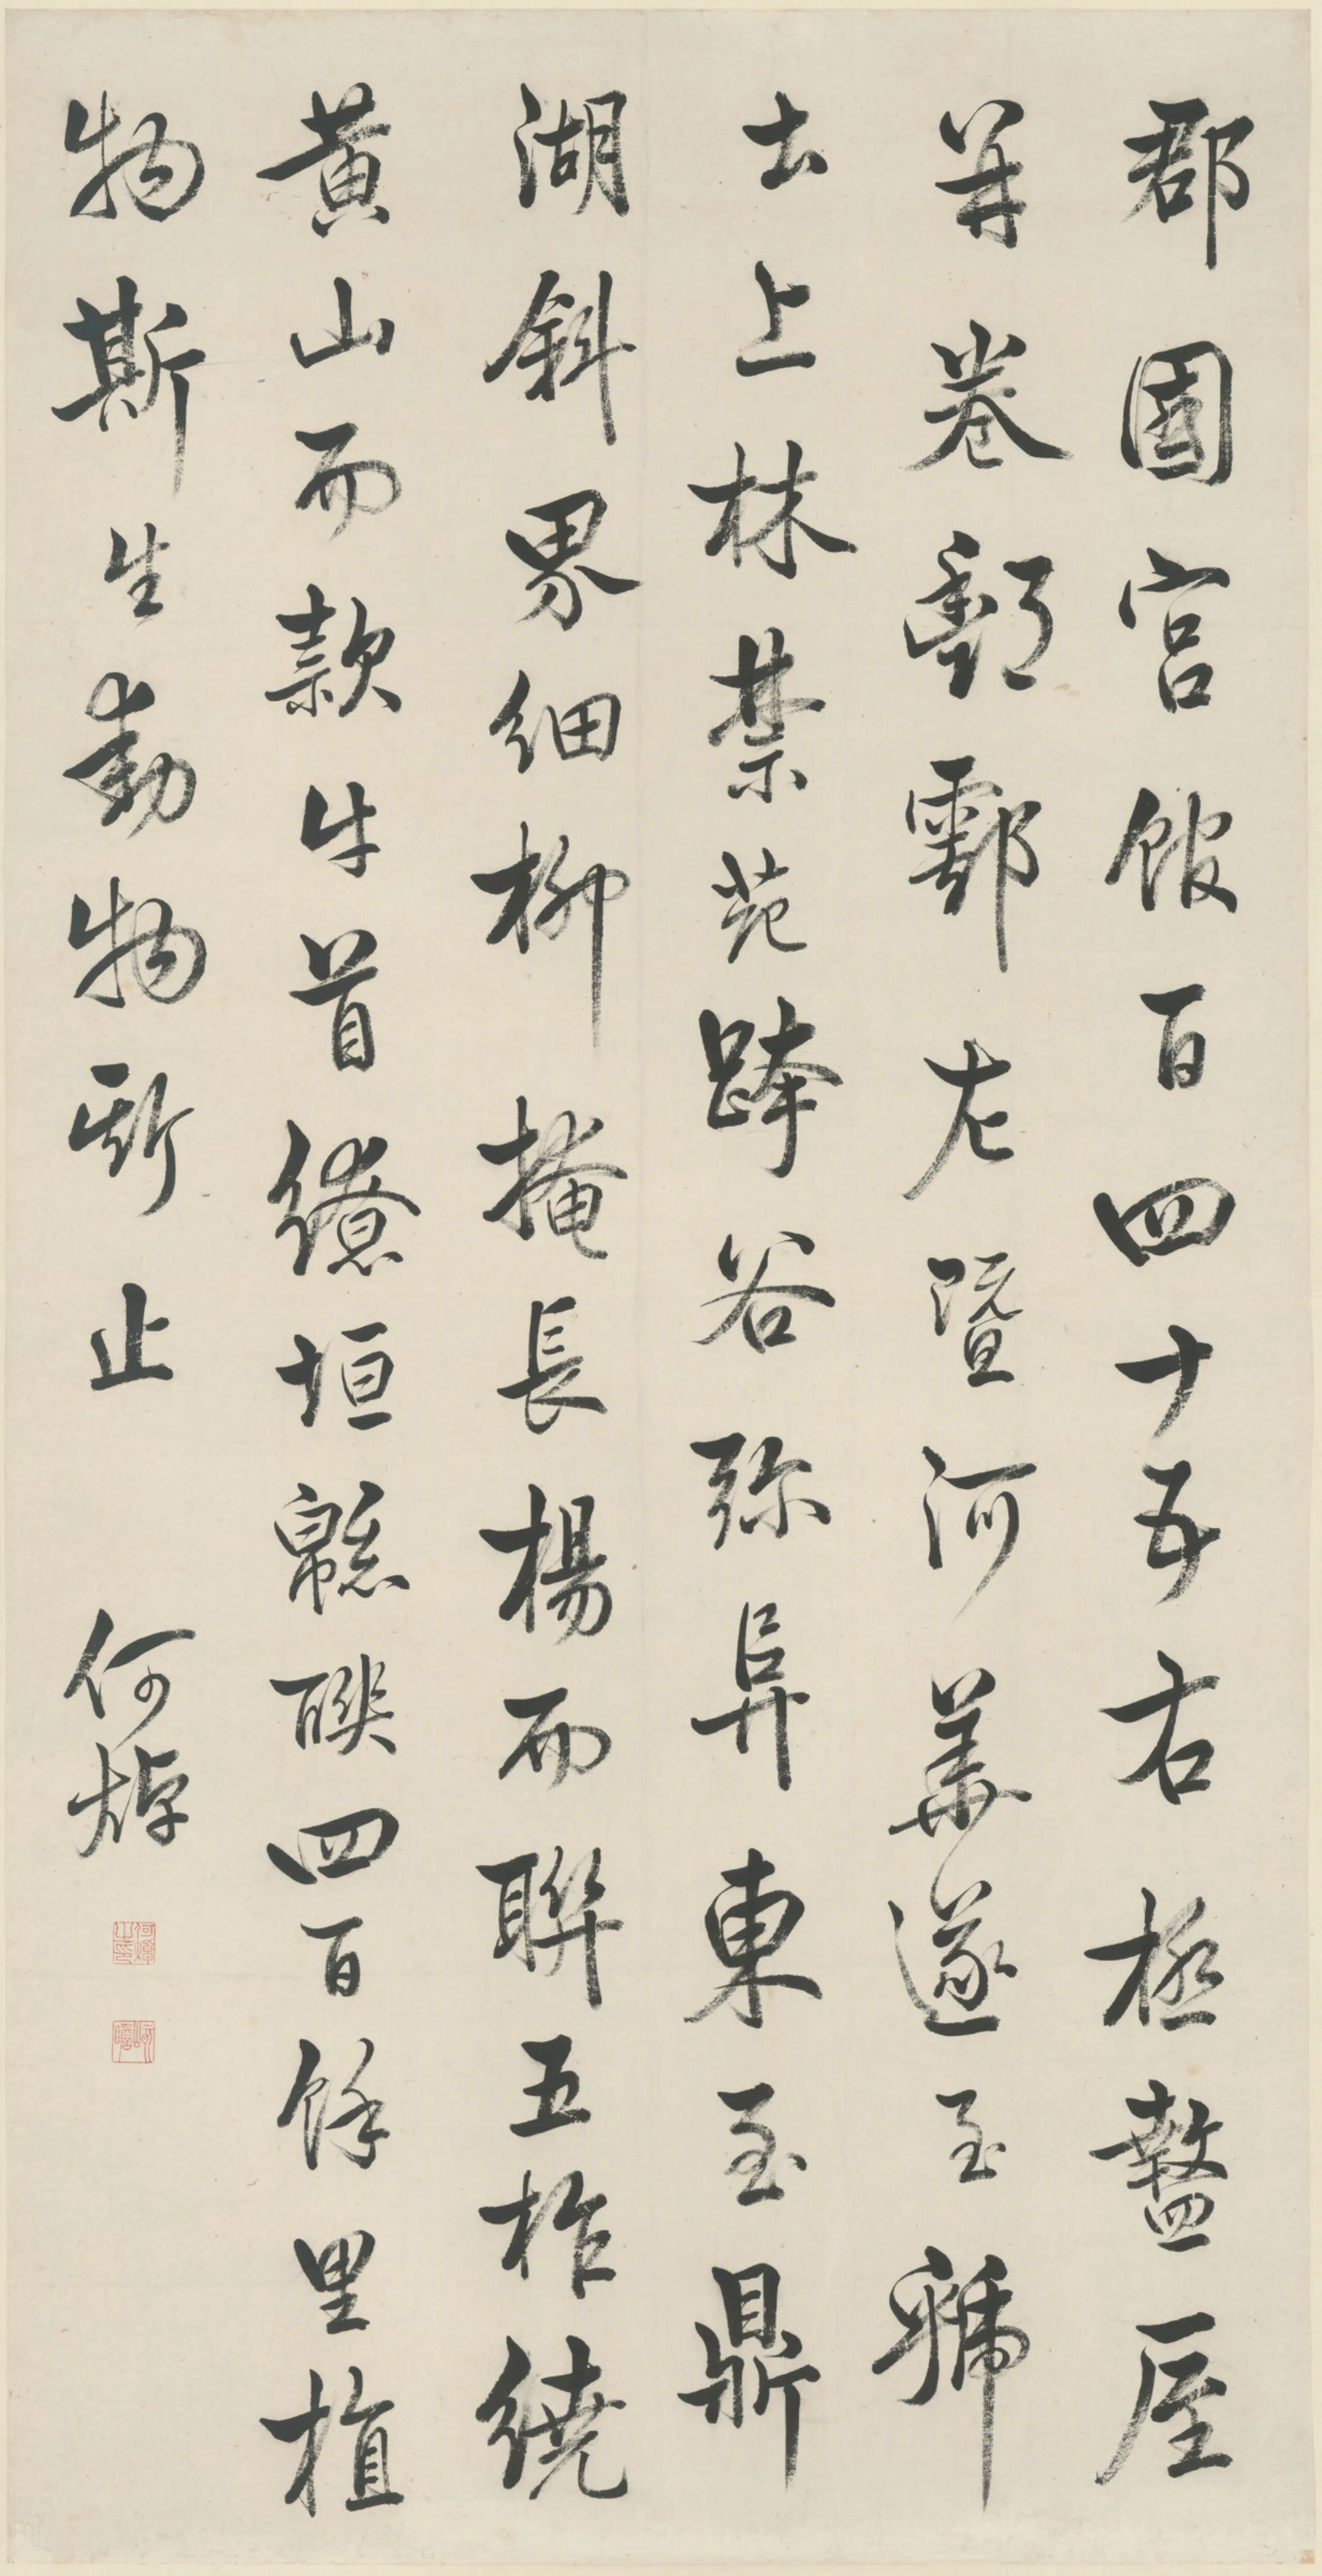 郡國宮館百四十五右極盩厔
并卷酆鄠左暨河華遂至虢
土上林禁苑跨谷弥阜東至鼎
湖斜界細柳掩長楊而聯五柞繞
黃山而款牛首繚垣緜聯四百餘里植
物斯生動物斯止 何焯
何焯之印
屺瞻